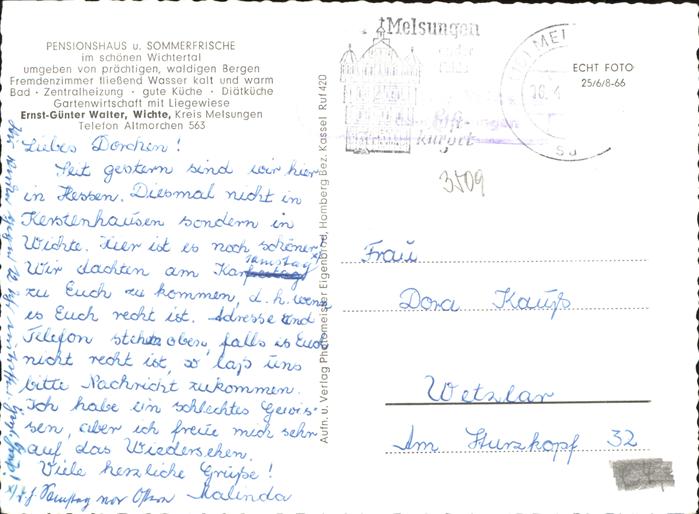 PENSIONSHAUS u. SOMMERFRISCHE
im schönen Wichtertal
umgeben von prächtigen, waldigen Bergen
Fremdenzimmer fließend Wasser kalt und warm
Bad · Zentralheizung · gute Küche · Diätküche
Gartenwirtschaft mit Liegewiese
Ernst-Günter Walter, Wichte, Kreis Melsungen
Telefon Altmorchen 563
Liebes Dorchen!
Seit gestern sind wir hier
in Hessen. Diesmal nicht in
Kerstenhausen sondern in
Wichte. Hier ist es noch schöner.
Wir dachten am Karsamstag
zu Euch zu kommen, d.h. wenn
es Euch recht ist. Adresse und
Telefon stehen oben, falls es Euch
nicht recht ist, so laß uns
bitte Nachricht zukommen.
Ich habe ein schlechtes Gewis-
sen, aber ich freue mich sehr
auf das Wiedersehen.
Viele herzliche Grüße!
Malinda
d.h. Samstag vor Ostern
Aufn. u. Verlag Photomeister Eigenbrod, Homberg Bez. Kassel Ruf 420
Melsungen
ECHT FOTO
25/6/8-66
3509
Frau
Dora Kauß
Wetzlar
Am Sturzkopf 32